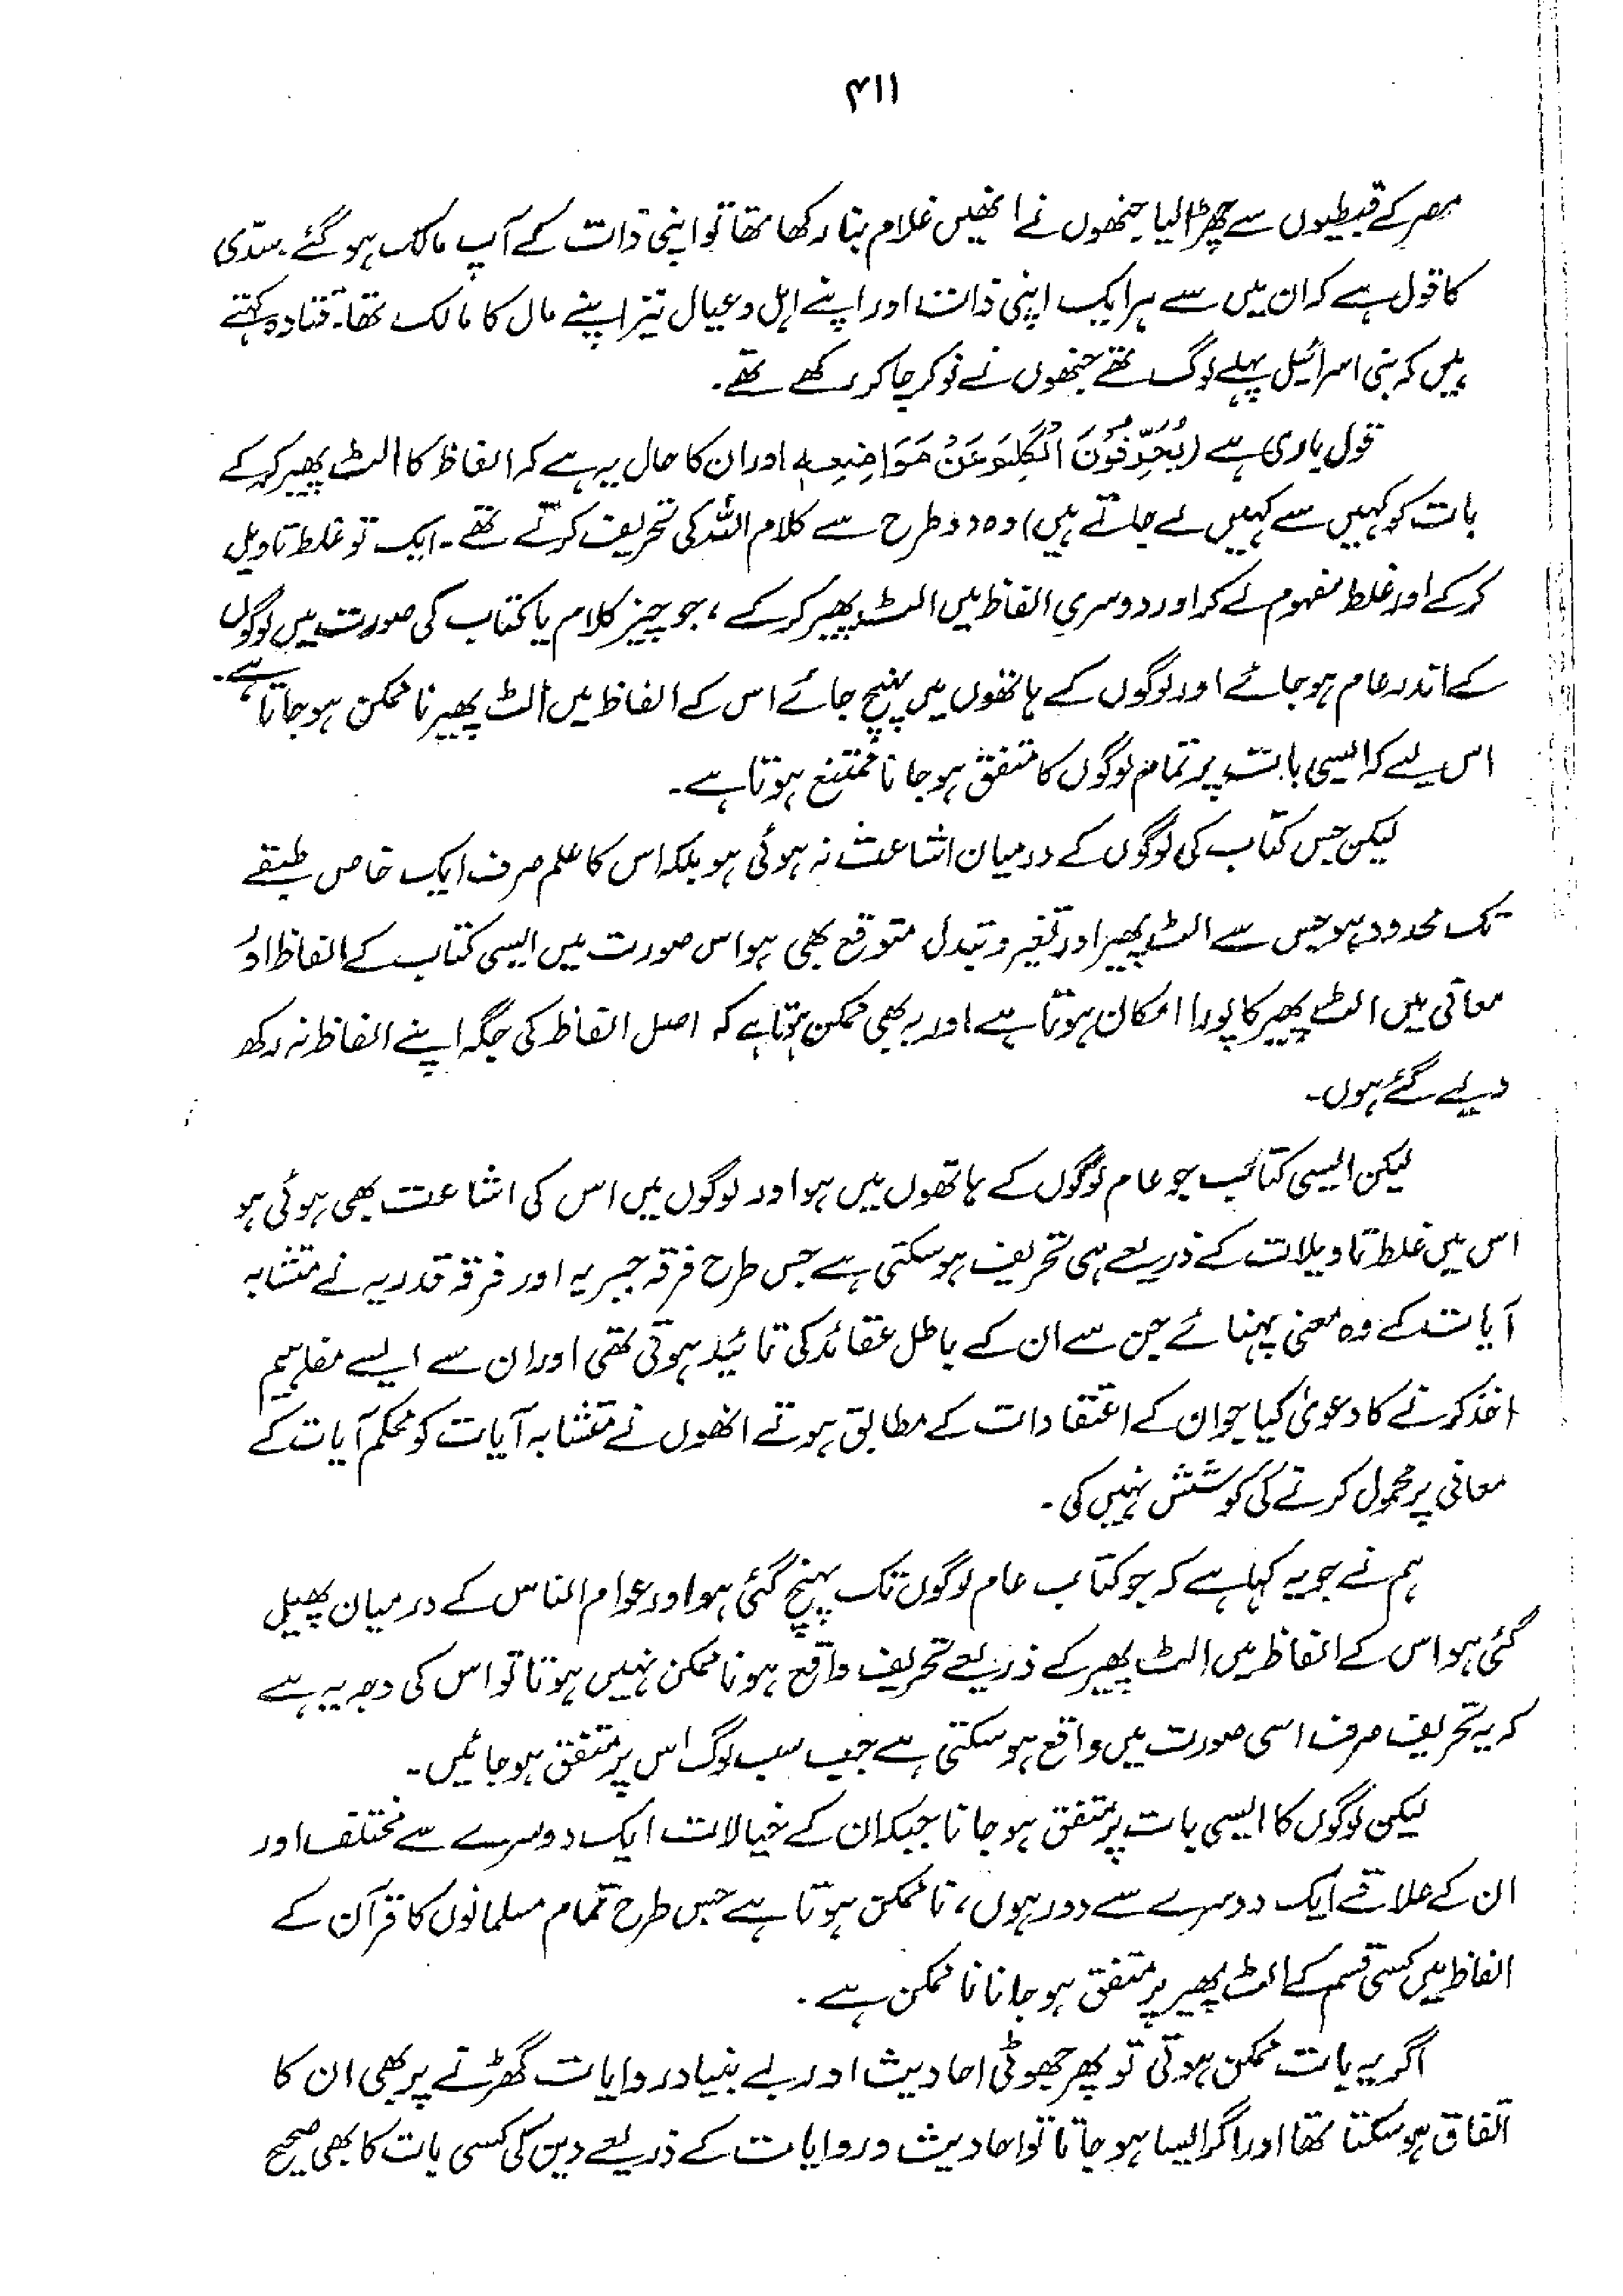 ۴۱۱
مصر کے قبطیوں سے چھڑا لیا جنھوں نے انھیں غلام بنا رکھا تھا تو اپنی ذات کے آپ مالک ہو گئے۔ سدّی
کا قول ہے کہ ان میں سے ہر ایک اپنی ذات اور اپنے اہل و عیال نیز اپنے مال کا مالک تھا۔ قتادہ کہتے
ہیں کہ بنی اسرائیل پہلے لوگ تھے جنھوں نے نوکر چاکر رکھے تھے۔
قول باری ہے (يُحَرِّفُوْنَ الْكَلِمَ عَنْ مَوَاضِعِهٖ اور ان کا حال یہ ہے کہ الفاظ کا الٹ پھیر کر کے
بات کو کہیں سے کہیں لے جاتے ہیں) وہ دو طرح سے کلام اللہ کی تحریف کرتے تھے۔ ایک تو غلط تاویل
کر کے اور غلط مفہوم لے کر اور دوسری الفاظ میں الٹ پھیر کر کے، جو چیز کلام یا کتاب کی صورت میں لوگوں
کے اندر عام ہو جائے اور لوگوں کے ہاتھوں میں پہنچ جائے اس کے الفاظ میں الٹ پھیر ناممکن ہو جاتا ہے۔
اس لیے کہ ایسی بات پر تمام لوگوں کا متفق ہو جانا ممتنع ہوتا ہے۔
لیکن جس کتاب کی لوگوں کے درمیان اشاعت نہ ہوئی ہو بلکہ اس کا علم صرف ایک خاص طبقے
تک محدود ہو جس سے الٹ پھیر اور تغیر و تبدل متوقع بھی ہو اس صورت میں ایسی کتاب کے الفاظ اور
معانی میں الٹ پھیر کا پورا امکان ہوتا ہے اور یہ بھی ممکن ہوتا ہے کہ اصل الفاظ کی جگہ اپنے الفاظ نہ رکھ
دیے گئے ہوں۔
لیکن ایسی کتاب جو عام لوگوں کے ہاتھوں میں ہو اور لوگوں میں اس کی اشاعت بھی ہوئی ہو
اس میں غلط تاویلات کے ذریعے ہی تحریف ہو سکتی ہے جس طرح فرقہ جبریہ اور فرقہ قدریہ نے متشابہ
آیات کے وہ معنی پہنائے جن سے ان کے باطل عقائد کی تائید ہوتی تھی اور ان سے ایسے مفاہیم
اخذ کرنے کا دعویٰ کیا جو ان کے اعتقادات کے مطابق ہوتے انھوں نے متشابہ آیات کو محکم آیات کے
معانی پر محمول کرنے کی کوشش نہیں کی۔
ہم نے جو یہ کہا ہے کہ جو کتاب عام لوگوں تک پہنچ گئی ہو اور عوام الناس کے درمیان پھیل
گئی ہو اس کے الفاظ میں الٹ پھیر کے ذریعے تحریف واقع ہونا ممکن نہیں ہوتا تو اس کی وجہ یہ ہے
کہ یہ تحریف صرف اسی صورت میں واقع ہو سکتی ہے جب سب لوگ اس پر متفق ہو جائیں۔
لیکن لوگوں کا ایسی بات پر متفق ہو جانا جبکہ ان کے خیالات ایک دوسرے سے مختلف اور
ان کے علاقے ایک دوسرے سے دور ہوں، ناممکن ہوتا ہے جس طرح تمام مسلمانوں کا قرآن کے
الفاظ میں کسی قسم کے الٹ پھیر پر متفق ہو جانا ناممکن ہے۔
اگر یہ بات ممکن ہوتی تو پھر جھوٹی احادیث اور بے بنیاد روایات گھڑنے پر بھی ان کا
اتفاق ہو سکتا تھا اور اگر ایسا ہو جاتا تو احادیث و روایات کے ذریعے دین کی کسی بات کا بھی صحیح